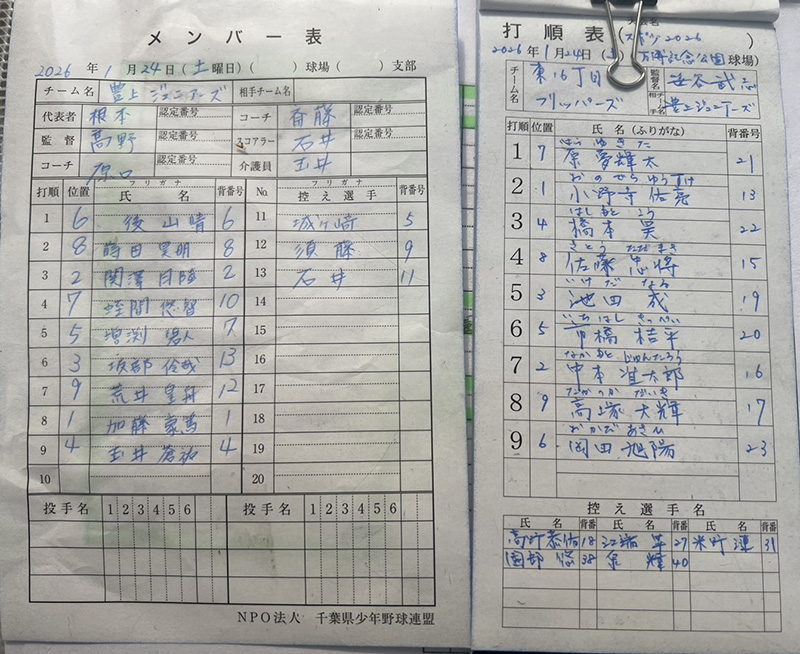 メンバー表
2026 年 1 月 24 日 ( 土 曜日) ( ) 球場 ( ) 支部
チーム名 豊上ジュニアーズ 相手チーム名
代表者 根本 認定番号 コーチ 斉藤 認定番号
監督 高野 認定番号 スコアラー 石井
コーチ 原口 認定番号 介護員 玉井
打順 位置 フリガナ 氏名 背番号 No. フリガナ 控え選手 背番号
1 6 後 山晴 6 11 城ヶ崎 5
2 8 時田 昊明 8 12 須藤 9
3 2 関澤 日陸 2 13 石井 11
4 7 悠智 10 14
5 5 増渕 7 15
6 3 坂部 伶哉 13 16
7 9 荒井 皇舟 12 17
8 1 加藤 豪篤 1 18
9 4 玉井 蒼祐 4 19
10 20
投手名 1 2 3 4 5 6 投手名 1 2 3 4 5 6
NPO法人 千葉県少年野球連盟
打順表
大会名
(スポーツ2026
2026年 1月24日(土) 万博記念公園 球場)
チーム名 東16丁目フリッパーズ
監督名 笹谷武志
相手チーム名 豊上ジュニアーズ
打順 位置 氏名(ふりがな) 背番号
はら ゆきた
1 7 原 夢輝太 21
おのでら ゆうすけ
2 1 小野寺 佑亮 13
はしもと こう
3 4 橋本 昊 22
さとう ただまさ
4 8 佐藤 忠将 15
いけだ なる
5 3 池田 成 19
いちはし きっぺい
6 5 市橋 桔平 20
なかもと じゅんたろう
7 2 中本 准太郎 16
たかつか だいき
8 9 高塚 大輝 17
おかだ あさひ
9 6 岡田 旭陽 23
控え選手名
氏名 背番 氏名 背番 氏名 背番
高野 泰佑 18 江端 27 米町 漣 31
園部 悠 38 泉 輝 40